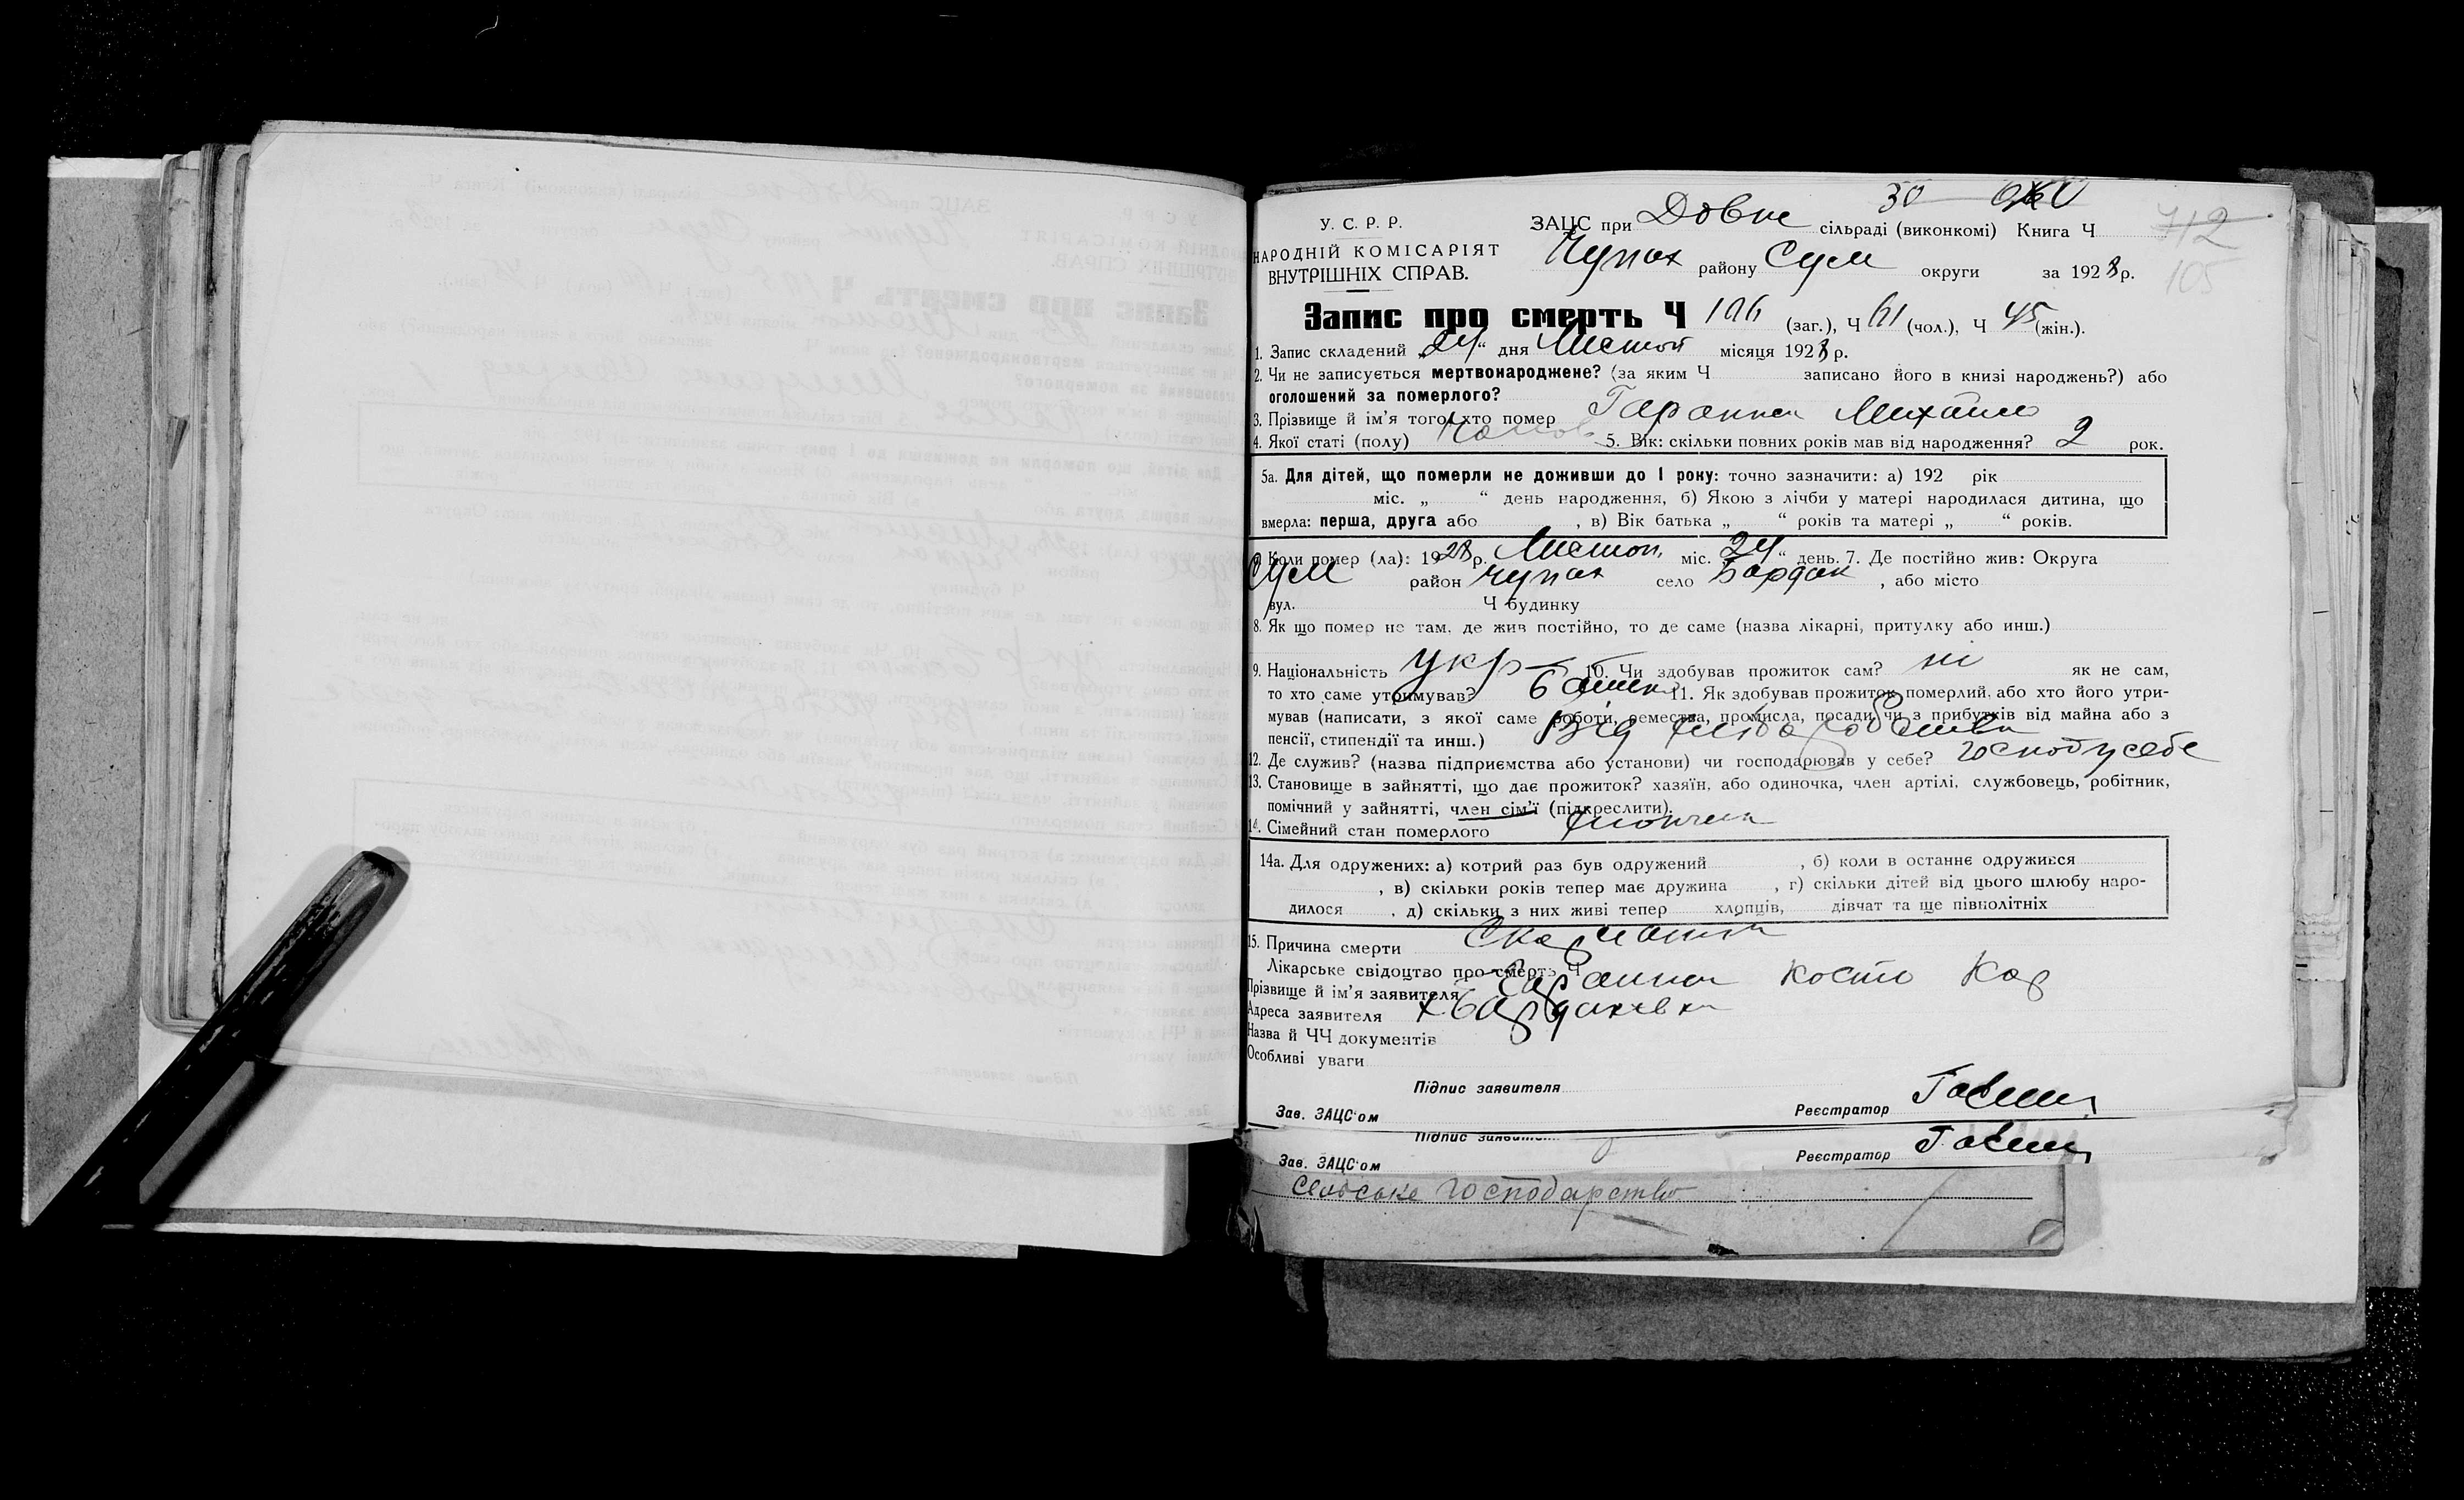 30
У. С. Р. Р.
ЗАЦС при Довж сільраді (виконкомі) Книга Ч 712
НАРОДНІЙ КОМІСАРІЯТ
ВНУТРІШНІХ СПРАВ.
Чупах району Сум округи за 1928 р. 105
Запис про смерть Ч 106 (заг.), Ч 61 (чол.), Ч 45 (жін.).
1. Запис складений „24“ дня Листоп місяця 1928 р.
2. Чи не записується мертвонароджене? (за яким Ч записано його в книзі народжень?) або
оголошений за померлого?
3. Прізвище й ім'я того, хто помер Гаранжа Михайло
4. Якої статі (полу) Чолов 5. Вік: скільки повних років мав від народження? 2 рок.
5а. Для дітей, що померли не доживши до 1 року: точно зазначити: а) 192 рік
міс. „ “ день народження, б) Якою з лічби у матері народилася дитина, що
вмерла: перша, друга або , в) Вік батька „ “ років та матері „ “ років.
6. Коли помер (ла): 1928 р. Листоп. міс. 24“ день. 7. Де постійно жив: Округа
Сум район Чупах село Бардак , або місто
вул. Ч будинку
8. Як що помер не там, де жив постійно, то де саме (назва лікарні, притулку або инш.)
9. Національність укр 10. Чи здобував прожиток сам? ні як не сам,
то хто саме утримував? батьки 11. Як здобував прожиток померлий, або хто його утри-
мував (написати, з якої саме роботи, ремества, промисла, посади чи з прибутків від майна або з
пенсії, стипендії та инш.) Від хлібаробства
12. Де служив? (назва підприємства або установи) чи господарював у себе? Господ у себе
13. Становище в зайнятті, що дає прожиток? хазяїн, або одиночка, член артілі, службовець, робітник,
помічний у зайнятті, член сім'ї (підкреслити).
14. Сімейний стан померлого
14а. Для одружених: а) котрий раз був одружений , б) коли в останнє одружився
, в) скільки років тепер має дружина , г) скільки дітей від цього шлюбу наро-
дилося , д) скільки з них живі тепер хлопців, дівчат та ще півнолітніх
15. Причина смерти Скарлатина
Лікарське свідоцтво про смерть Ч
Прізвище й ім'я заявителя Гаранжа Косто Кар
Адреса заявителя х Бардаковка
Назва й ЧЧ документів
Особливі уваги
Підпис заявителя
Зав. ЗАЦС'ом Реєстратор
Підпис заявителя
Зав. ЗАЦС'ом Реєстратор
Сельське господарство